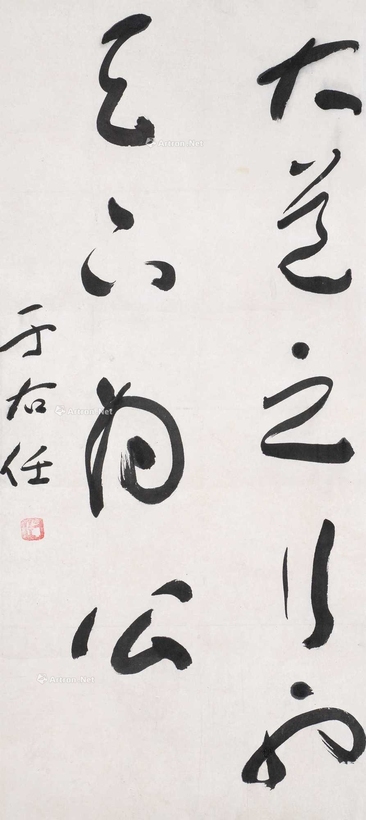 大道之行也
天下為公
于右任
Artron.Net
Artron.Net
Artron.Net